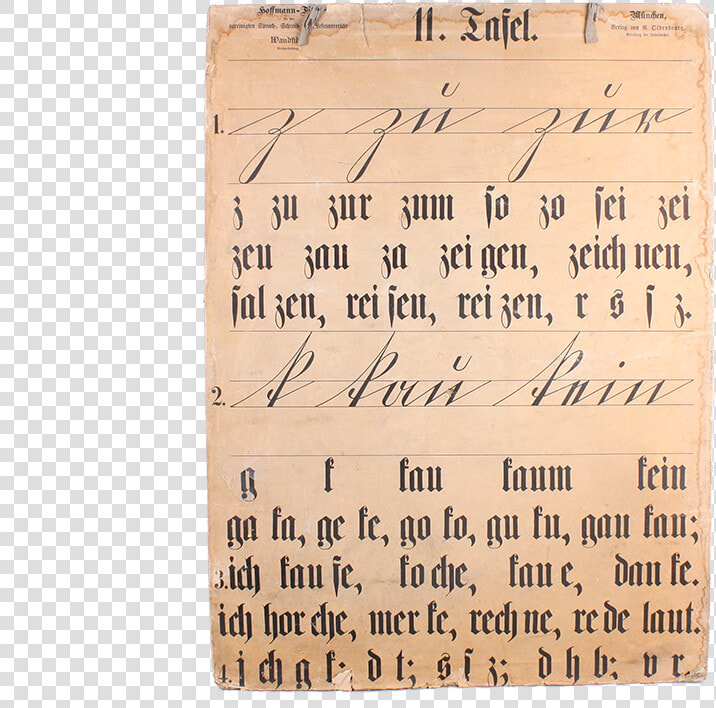 11. Tafel.
München,
Verlag von R. Oldenbourg
1. z zu zur
z zu zur zum ſo zo ſei zei
zeu zau za zei gen, zeich nen,
ſal zen, rei ſen, rei zen, r s ſ z.
2. k kau kein
g k kau kaum kein
ga ka, ge ke, go ko, gu ku, gau kau;
3. ich kau fe, ko che, kau e, dan ke.
ich hor che, mer ke, rech ne, re de laut.
4. j ch g k; d t; s ſ z; d h b; v r.